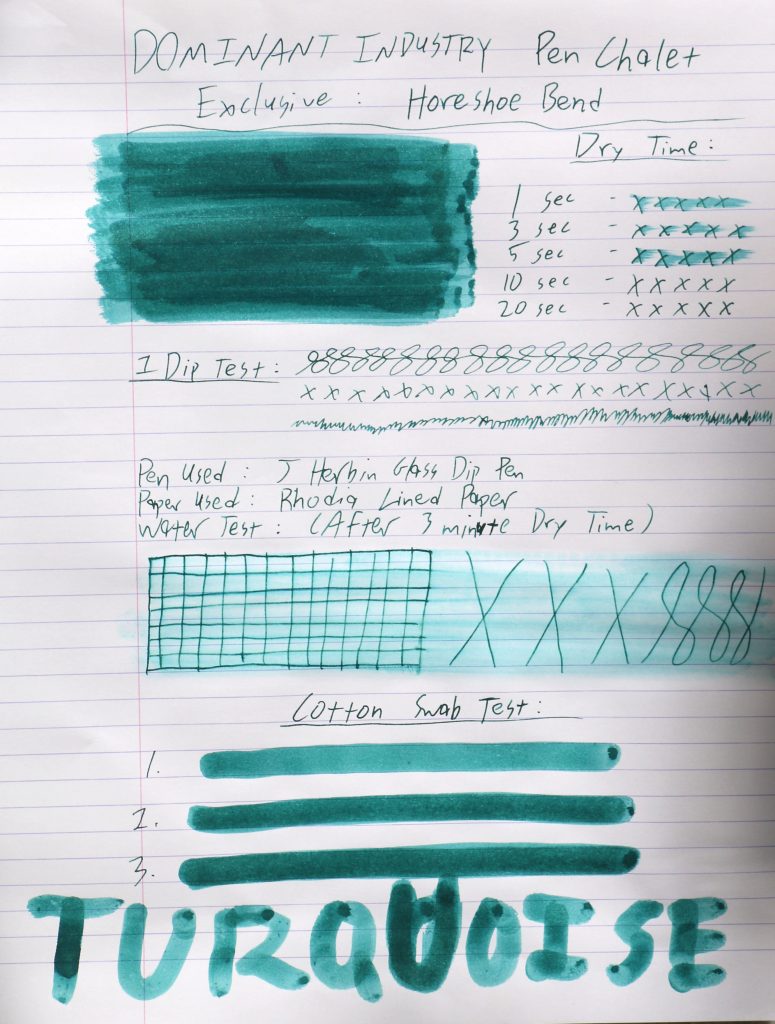 DOMINANT INDUSTRY Pen Chalet
Exclusive : Horeshoe Bend
Dry Time :
1 sec - x x x x x
3 sec - x x x x x
5 sec - x x x x x
10 sec - x x x x x
20 sec - x x x x x
1 Dip Test : 8888888888888888888
x x x x x x x x x x x x x x x x x x x
Pen Used : J Herbin Glass Dip Pen
Paper Used : Rhodia Lined Paper
Water Test : (After 3 minute Dry Time)
X X X 8 8 8
Cotton Swab Test :
1.
2.
3.
TURQUOISE